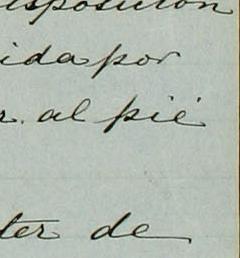 isposición
ida por
r. al pié
ter de